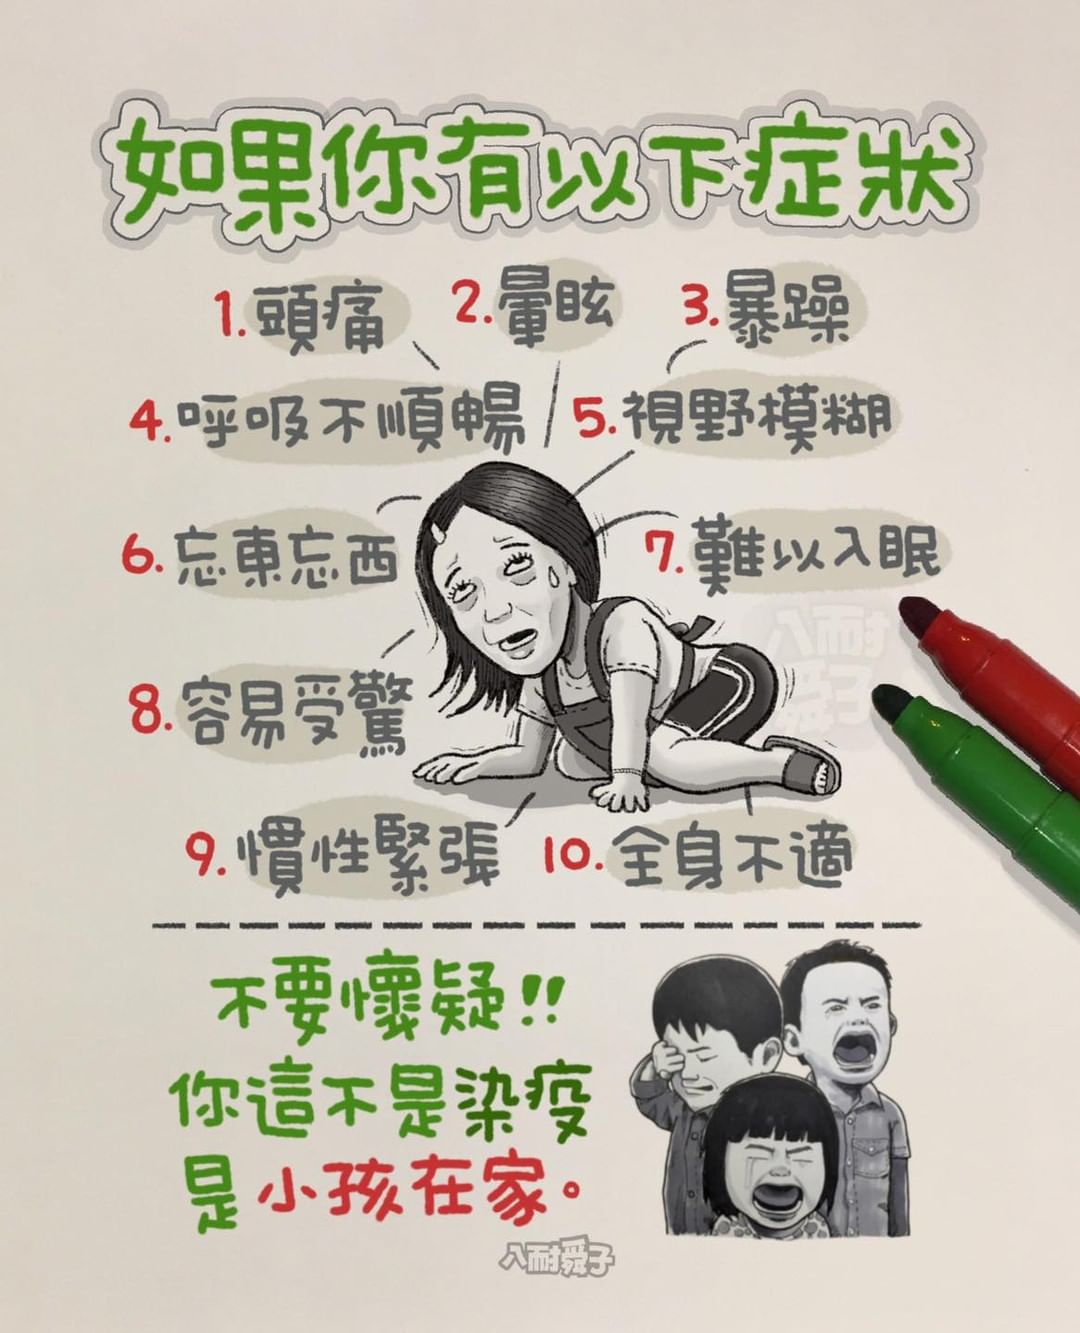 如果你有以下症狀
1.頭痛 2.暈眩 3.暴躁
4.呼吸不順暢 5.視野模糊
6.忘東忘西 7.難以入眠
八耐舜子
8.容易受驚
9.慣性緊張 10.全身不適
不要懷疑!!
你這不是染疫
是小孩在家。
八耐舜子